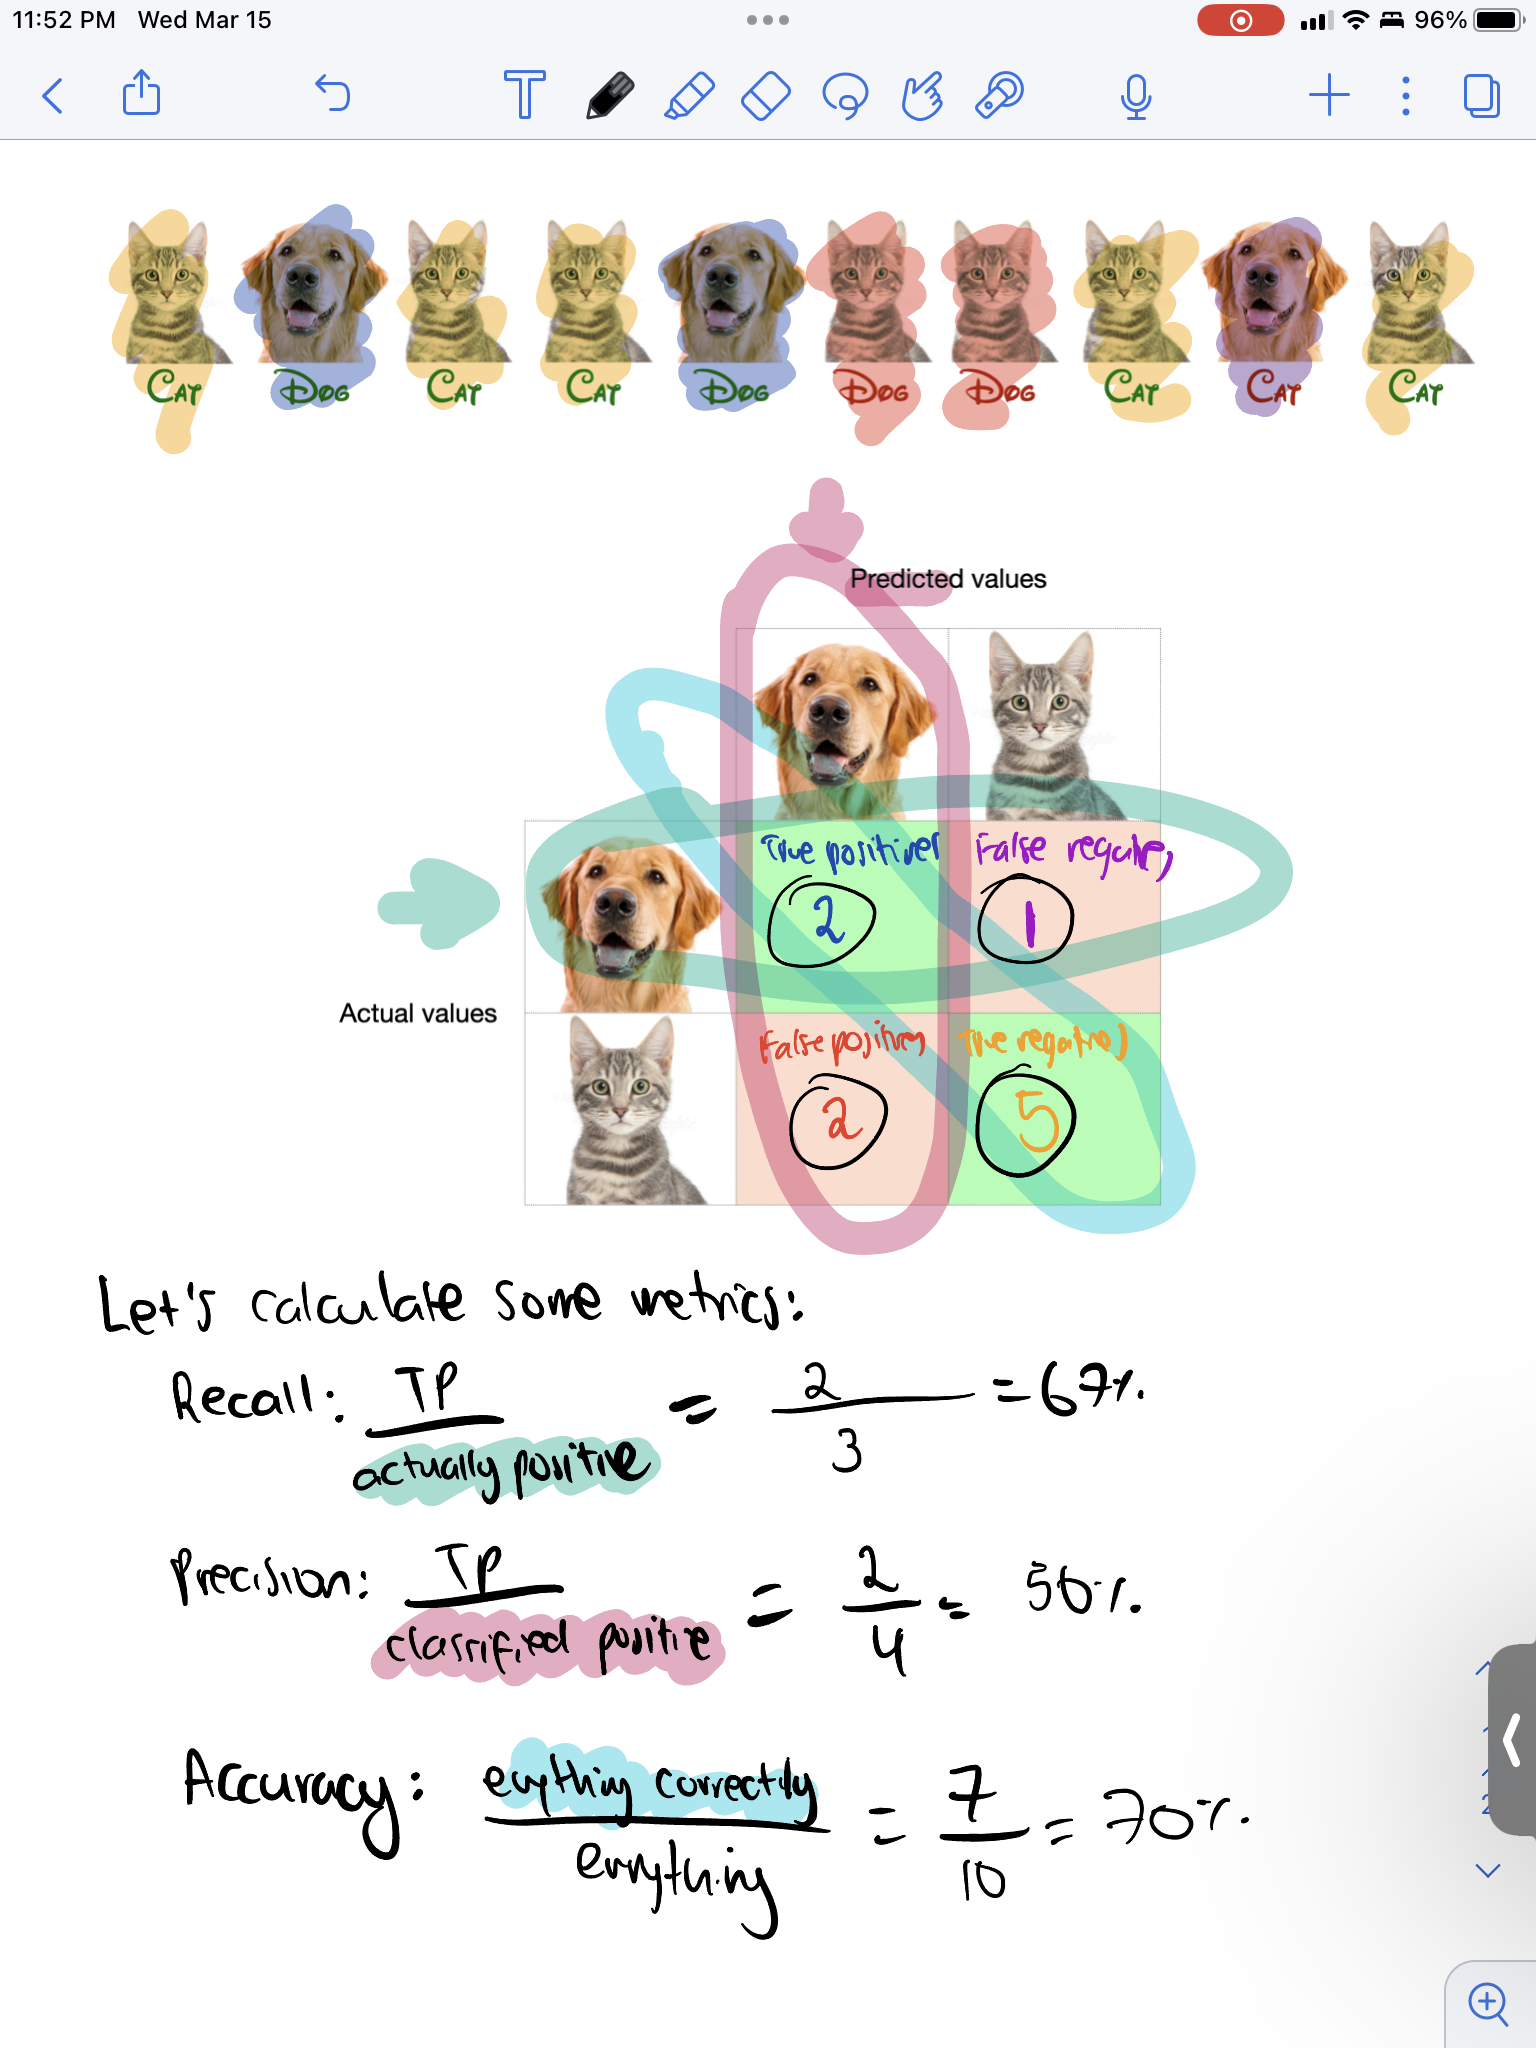 11:52 PM Wed Mar 15 96%
Cat Dog Cat Cat Dog Dog Dog Cat Cat Cat
Predicted values
True positives False negatives
2 1
Actual values
False positives True negatives
2 5
Let's calculate some metrics:
Recall: TP / actually positive = 2 / 3 = 67%
Precision: TP / classified positive = 2 / 4 = 50%
Accuracy: evrything correctly / evrything = 7 / 10 = 70%